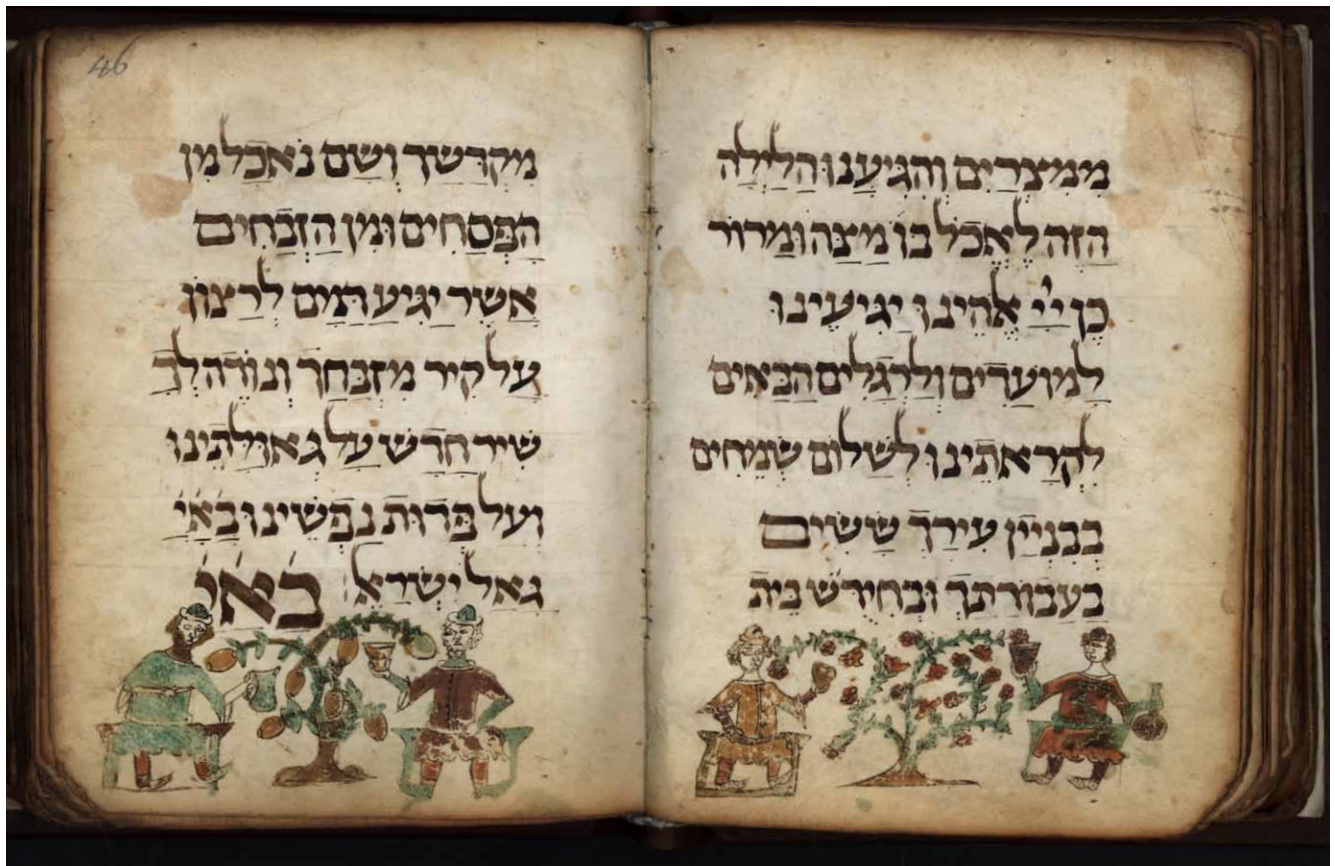 46
ממצרים והגיענו הלילה
הזה לאכל בו מצה ומרור
כן ייי אלהינו יגיעינו
למועדים ולרגלים הבאים
לקראתינו לשלום שמחים
בבניין עירך ששים
בעבודתך ובחידוש בית
מקדשך ושם נאכל מן
הפסחים ומן הזבחים
אשר יגיע דמם לרצון
על קיר מזבחך ונודה לך
שיר חדש על גאולתינו
ועל פדות נפשינו באי
גאל ישראל: באי